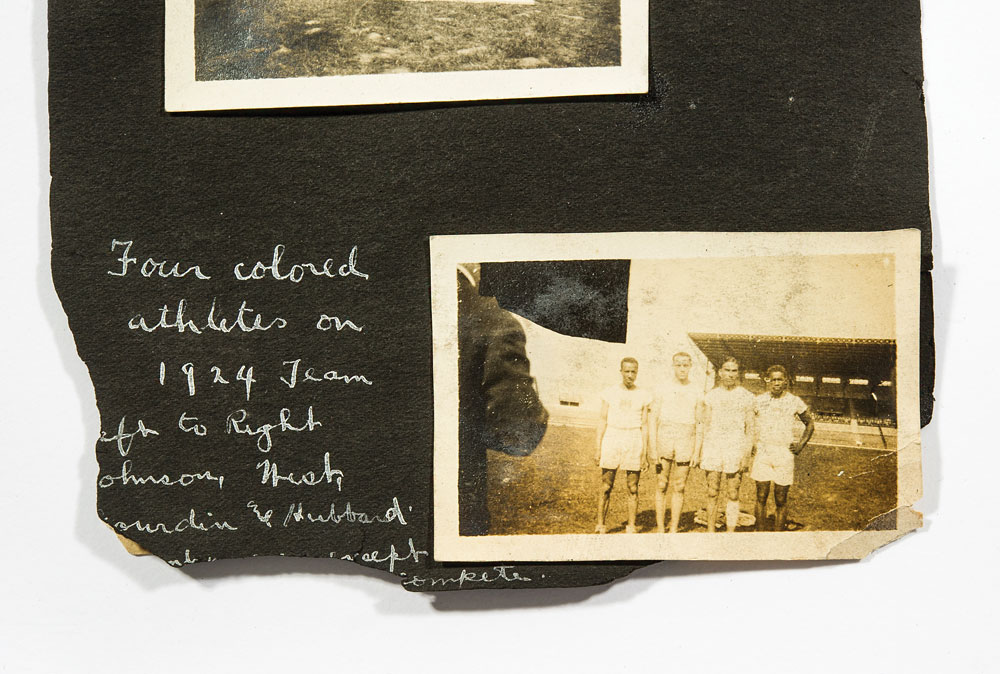 Four colored
athletes on
1924 Team
eft to Right
ohnson, West,
ourdin & Hubbard
xcept
ompete.